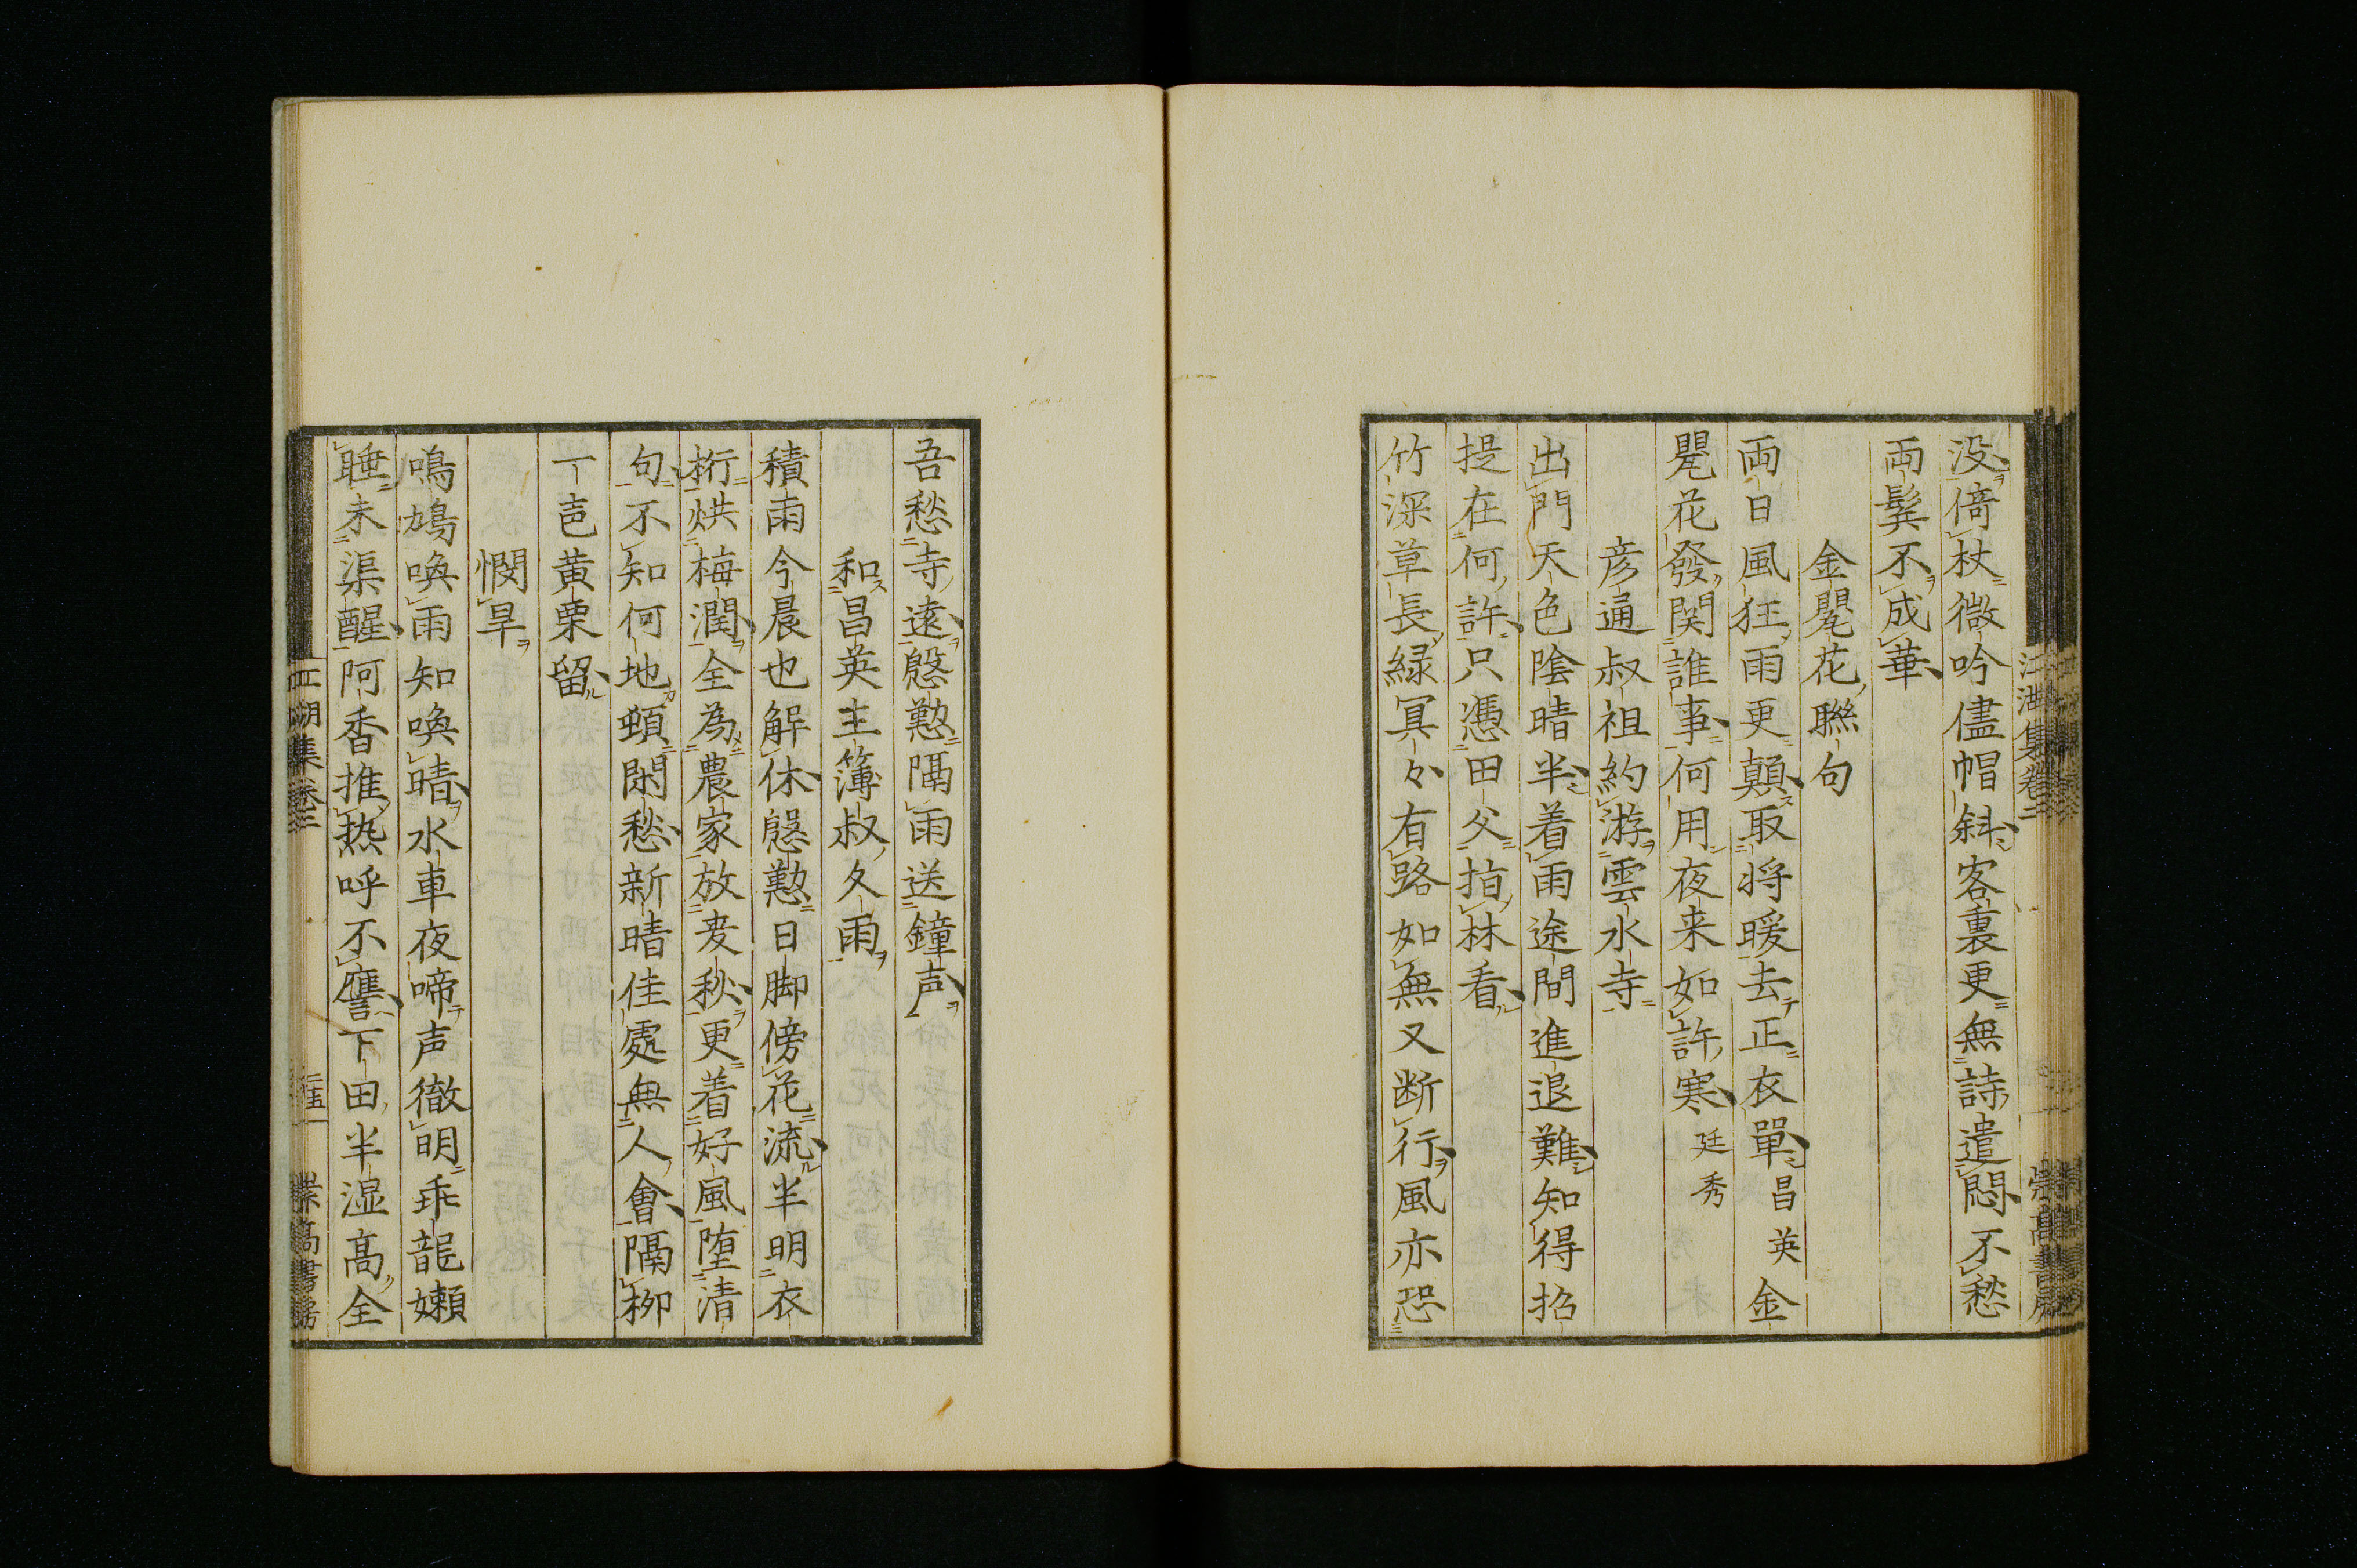 没倚杖微吟儘帽斜客裏更無詩遣悶不愁
両鬂不成華
金鳳花聯句
両日風狂雨更顛取将暖去正衣單昌英金
鳳花發関誰事何用夜来如許寒廷秀
彦通叔祖約游雲水寺
出門天色陰晴半着雨途間進退難知得招
提在何許只憑田父指林看
竹深草長緑冥々有路如無又断行風亦恐
吾愁寺遠慇懃隔雨送鐘声
和昌英主簿叔久雨
積雨今晨也解休慇懃日脚傍花流半明衣
桁烘梅潤全為農家放麦秋更着好風堕清
句不知何地頓閑愁新晴佳處無人會隔柳
一声黄栗留
憫旱
鳴鳩喚雨知喚晴水車夜啼声徹明乖龍嬾
睡未渠醒阿香推熱呼不譍下田半湿高全
江湖集巻二
崇高書房